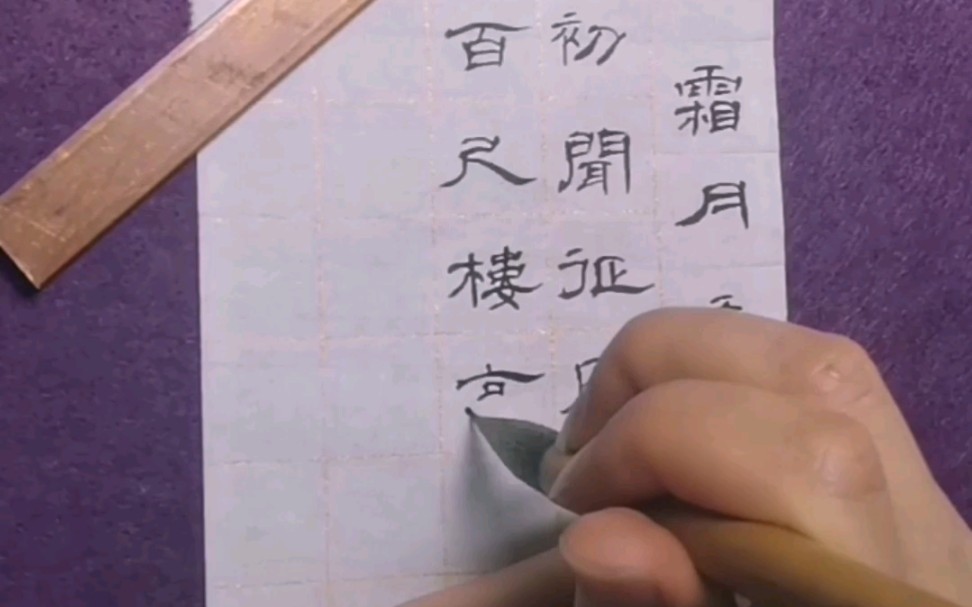 霜月
初聞征
百尺樓